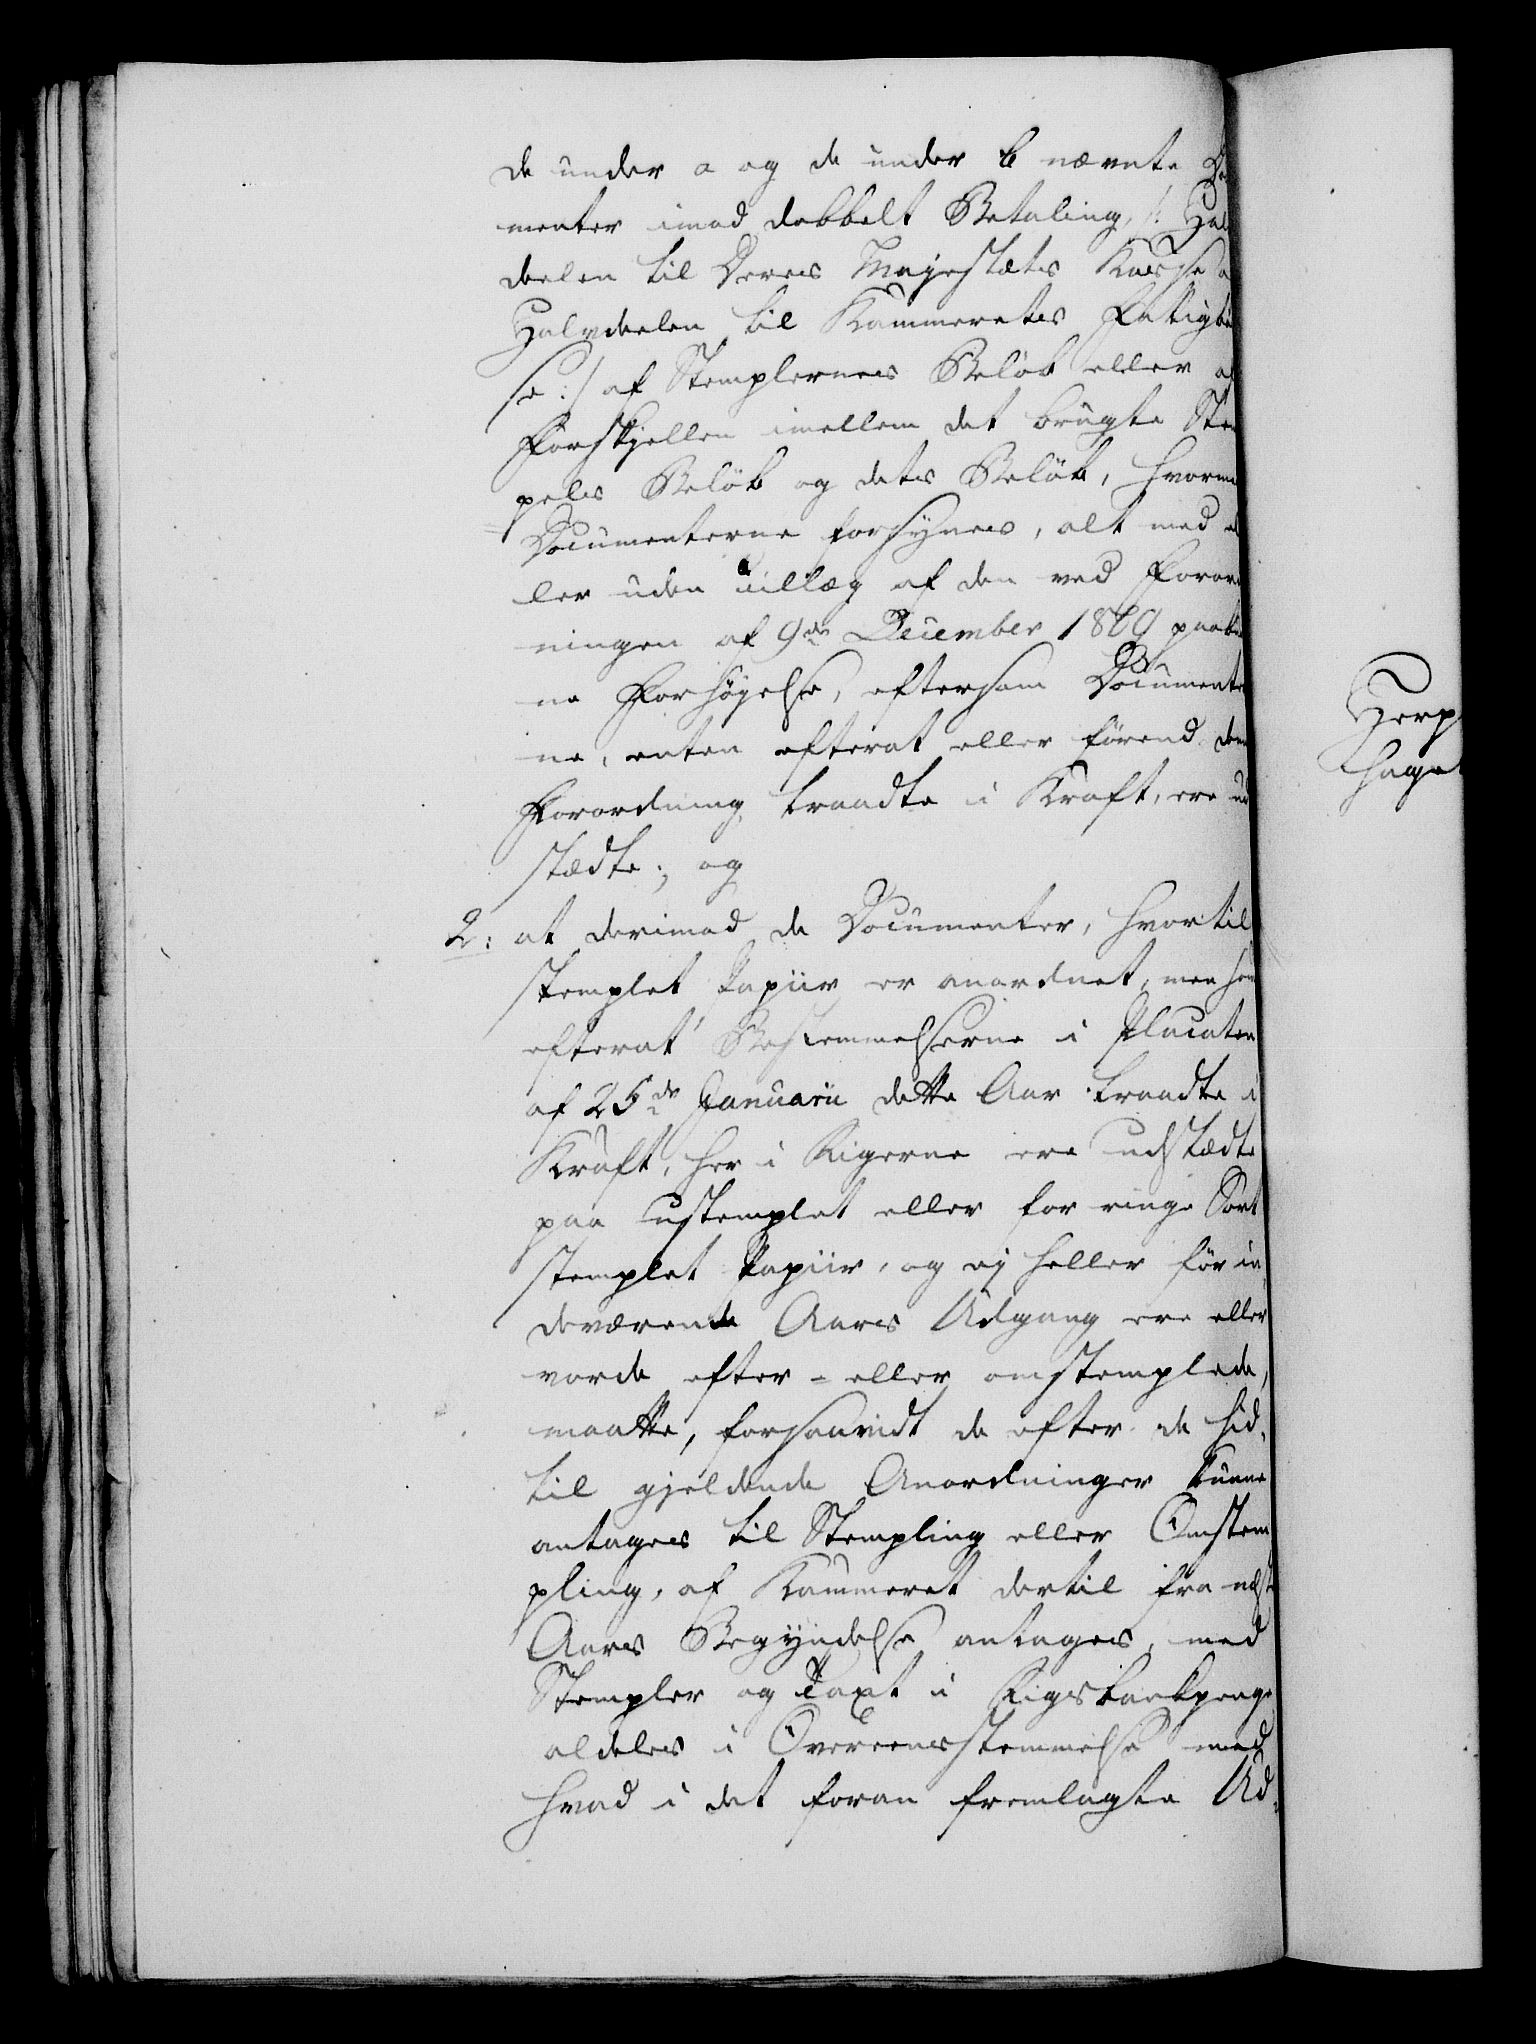 de under a og de under b nævnte Do
menter imod dobbelt Betaling, /: Hal
deelen til Deres Majestæts Kasse o
Halvdeelen til Kammerets Fattigbø
se :/ af Stemplernes Beløb eller af
Forskjellen imellem det brugte Stem
pels Beløb og dets Beløb, hvorme
Documenterne forsynes, alt med el
ler uden Tillæg af den ved Forord
ningen af 9de December 1809 paabu
ne Forhøyelse, eftersom Documente
ne, enten efterat eller førend den
Forordning traadte i Kraft, ere ud
stædte; og
2: at derimod de Documenter, hvortil
stemplet Papiir er anordnet, men som
efterat Bestemmelserne i Placaten
af 25de Januarii dette Aar traadte i
Kraft, her i Rigerne ere udstædte
paa ustemplet eller for ringe Sort
stemplet Papiir, og ej heller før in
deværende Aars Udgang ere eller
vorde efter- eller omstemplede,
maatte, forsaavidt de efter de hid,
til gjeldende Anordninger kunne
antages til Stempling eller Omstem
pling, af Kammeret dertil fra næste
Aars Begyndelse antages, med
Stempler og Taxt i Rigsbankpenge
aldeles i Overeensstemmelse med
hvad i det foran fremlagte Ud-
Herp
hage